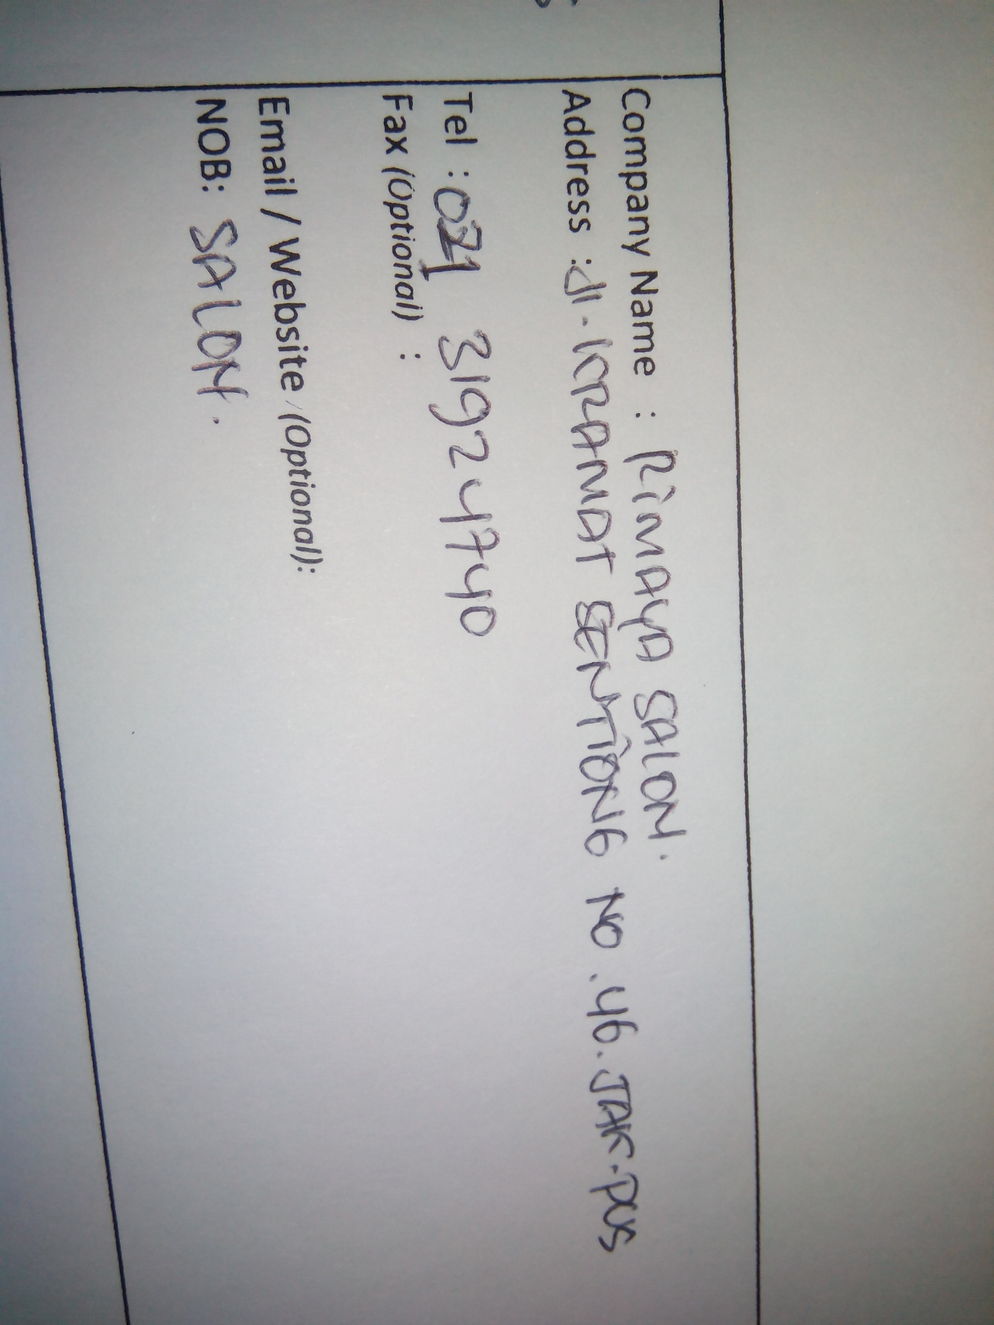 Company Name : RiMAYA SALON.
Address : Jl. KRAMAT SENTiONG NO. 46. JAK-PUS
Tel : 021 3192 4740
Fax (Optional) :
Email / Website (Optional):
NOB: SALON.